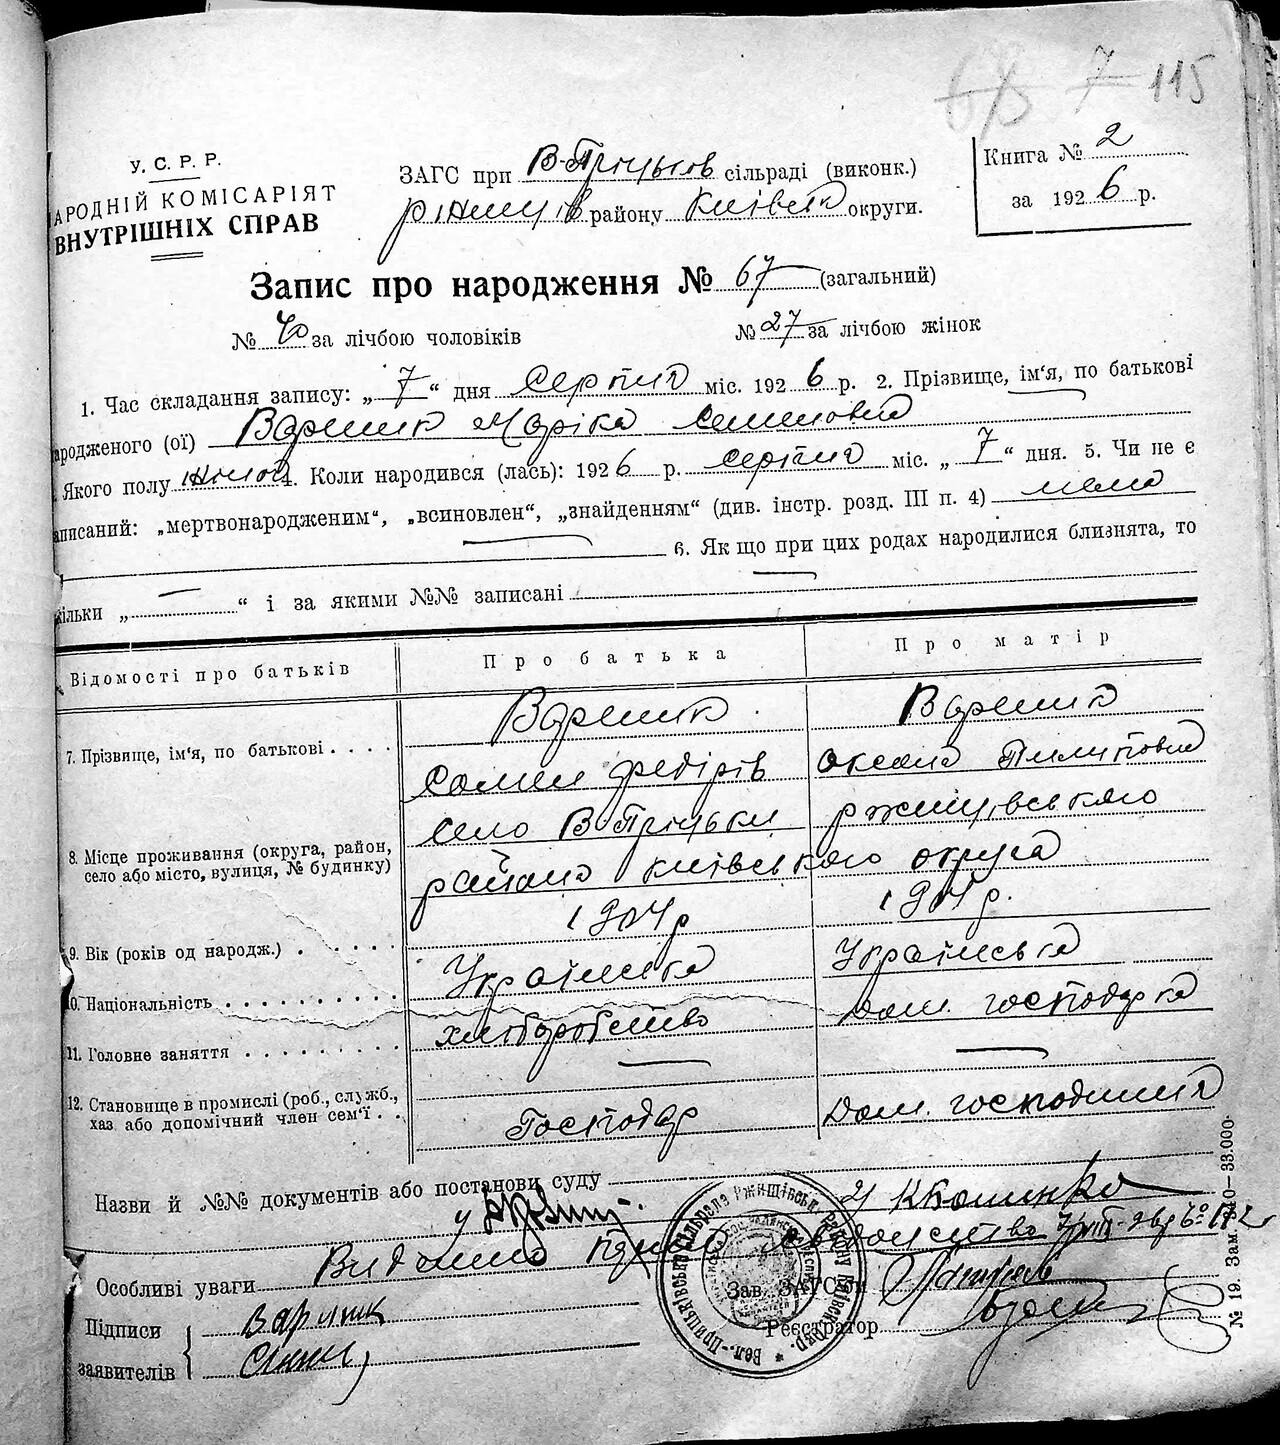 7 115
У. С. Р. Р.
АРОДНІЙ КОМІСАРІЯТ
ВНУТРІШНІХ СПРАВ
ЗАГС при В-Пріцьків сільраді (виконк.)
району Київськ округи.
Книга № 2
за 1926 р.
Запис про народження № 67 (загальний)
№ 40 за лічбою чоловіків № 27 за лічбою жінок
1. Час складання запису: „ 7 “ дня Серпня міс. 1926 р. 2. Прізвище, ім‘я, по батькові
ародженого (ої) Вареник Маріка Семеновна
Якого полу жіноч 4. Коли народився (лась): 1926 р. серпня міс. „ 7 “ дня. 5. Чи не є
аписаний: „мертвонародженим“, „всиновлен“, „знайденням“ (див. інстр. розд. III п. 4) нема
6. Як що при цих родах народилися близнята, то
кільки „ — “ і за якими №№ записані —
Відомості про батьків Про батька Про матір
7. Прізвище, ім‘я, по батькові . . . . Вареник Вареник
Семен Федірів Оксана Пилиповна
8. Місце проживання (округа, район, село В-Пріцьки ржищівського
село або місто, вулиця, № будинку) района київського округа
9. Вік (років од народж.) . . . . . 1904 р 1904 р.
10. Національність . . . . . . . . . . Українська Українська
11. Головне заняття . . . . . . . . . хліборобство дом. господарка
12. Становище в промислі (роб., службс., — —
хаз. або допомічний член сем‘ї . . Господар дом. господиня
Назви й №№ документів або постанови суду
Особливі уваги Видано
Підписи Вареник
заявителів Семен
Зав. ЗАГС‘ом
Реєстратор
Вел.-Прицьківська сільрада Ржищівськ. району Київськ. окр.
№ 19. Зам. —33.000.